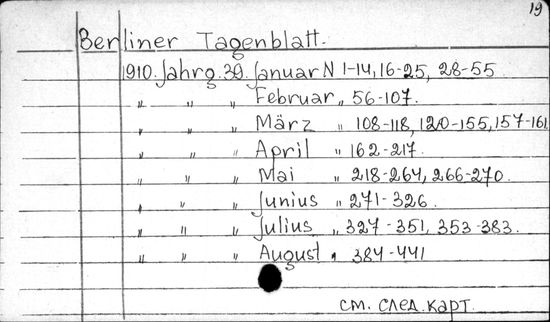 19
Berliner Tagenblatt.
1910. Jahrg. 39. Januar N 1-14, 16-25, 28-55.
" " " Februar " 56-107.
" " " März " 108-118, 120-155, 157-161
" " " April " 162-217.
" " " Mai " 218-264, 266-270.
" " " Junius " 271-326.
" " " Julius " 327-351, 353-383.
" " " August " 384-441
см. след. карт.